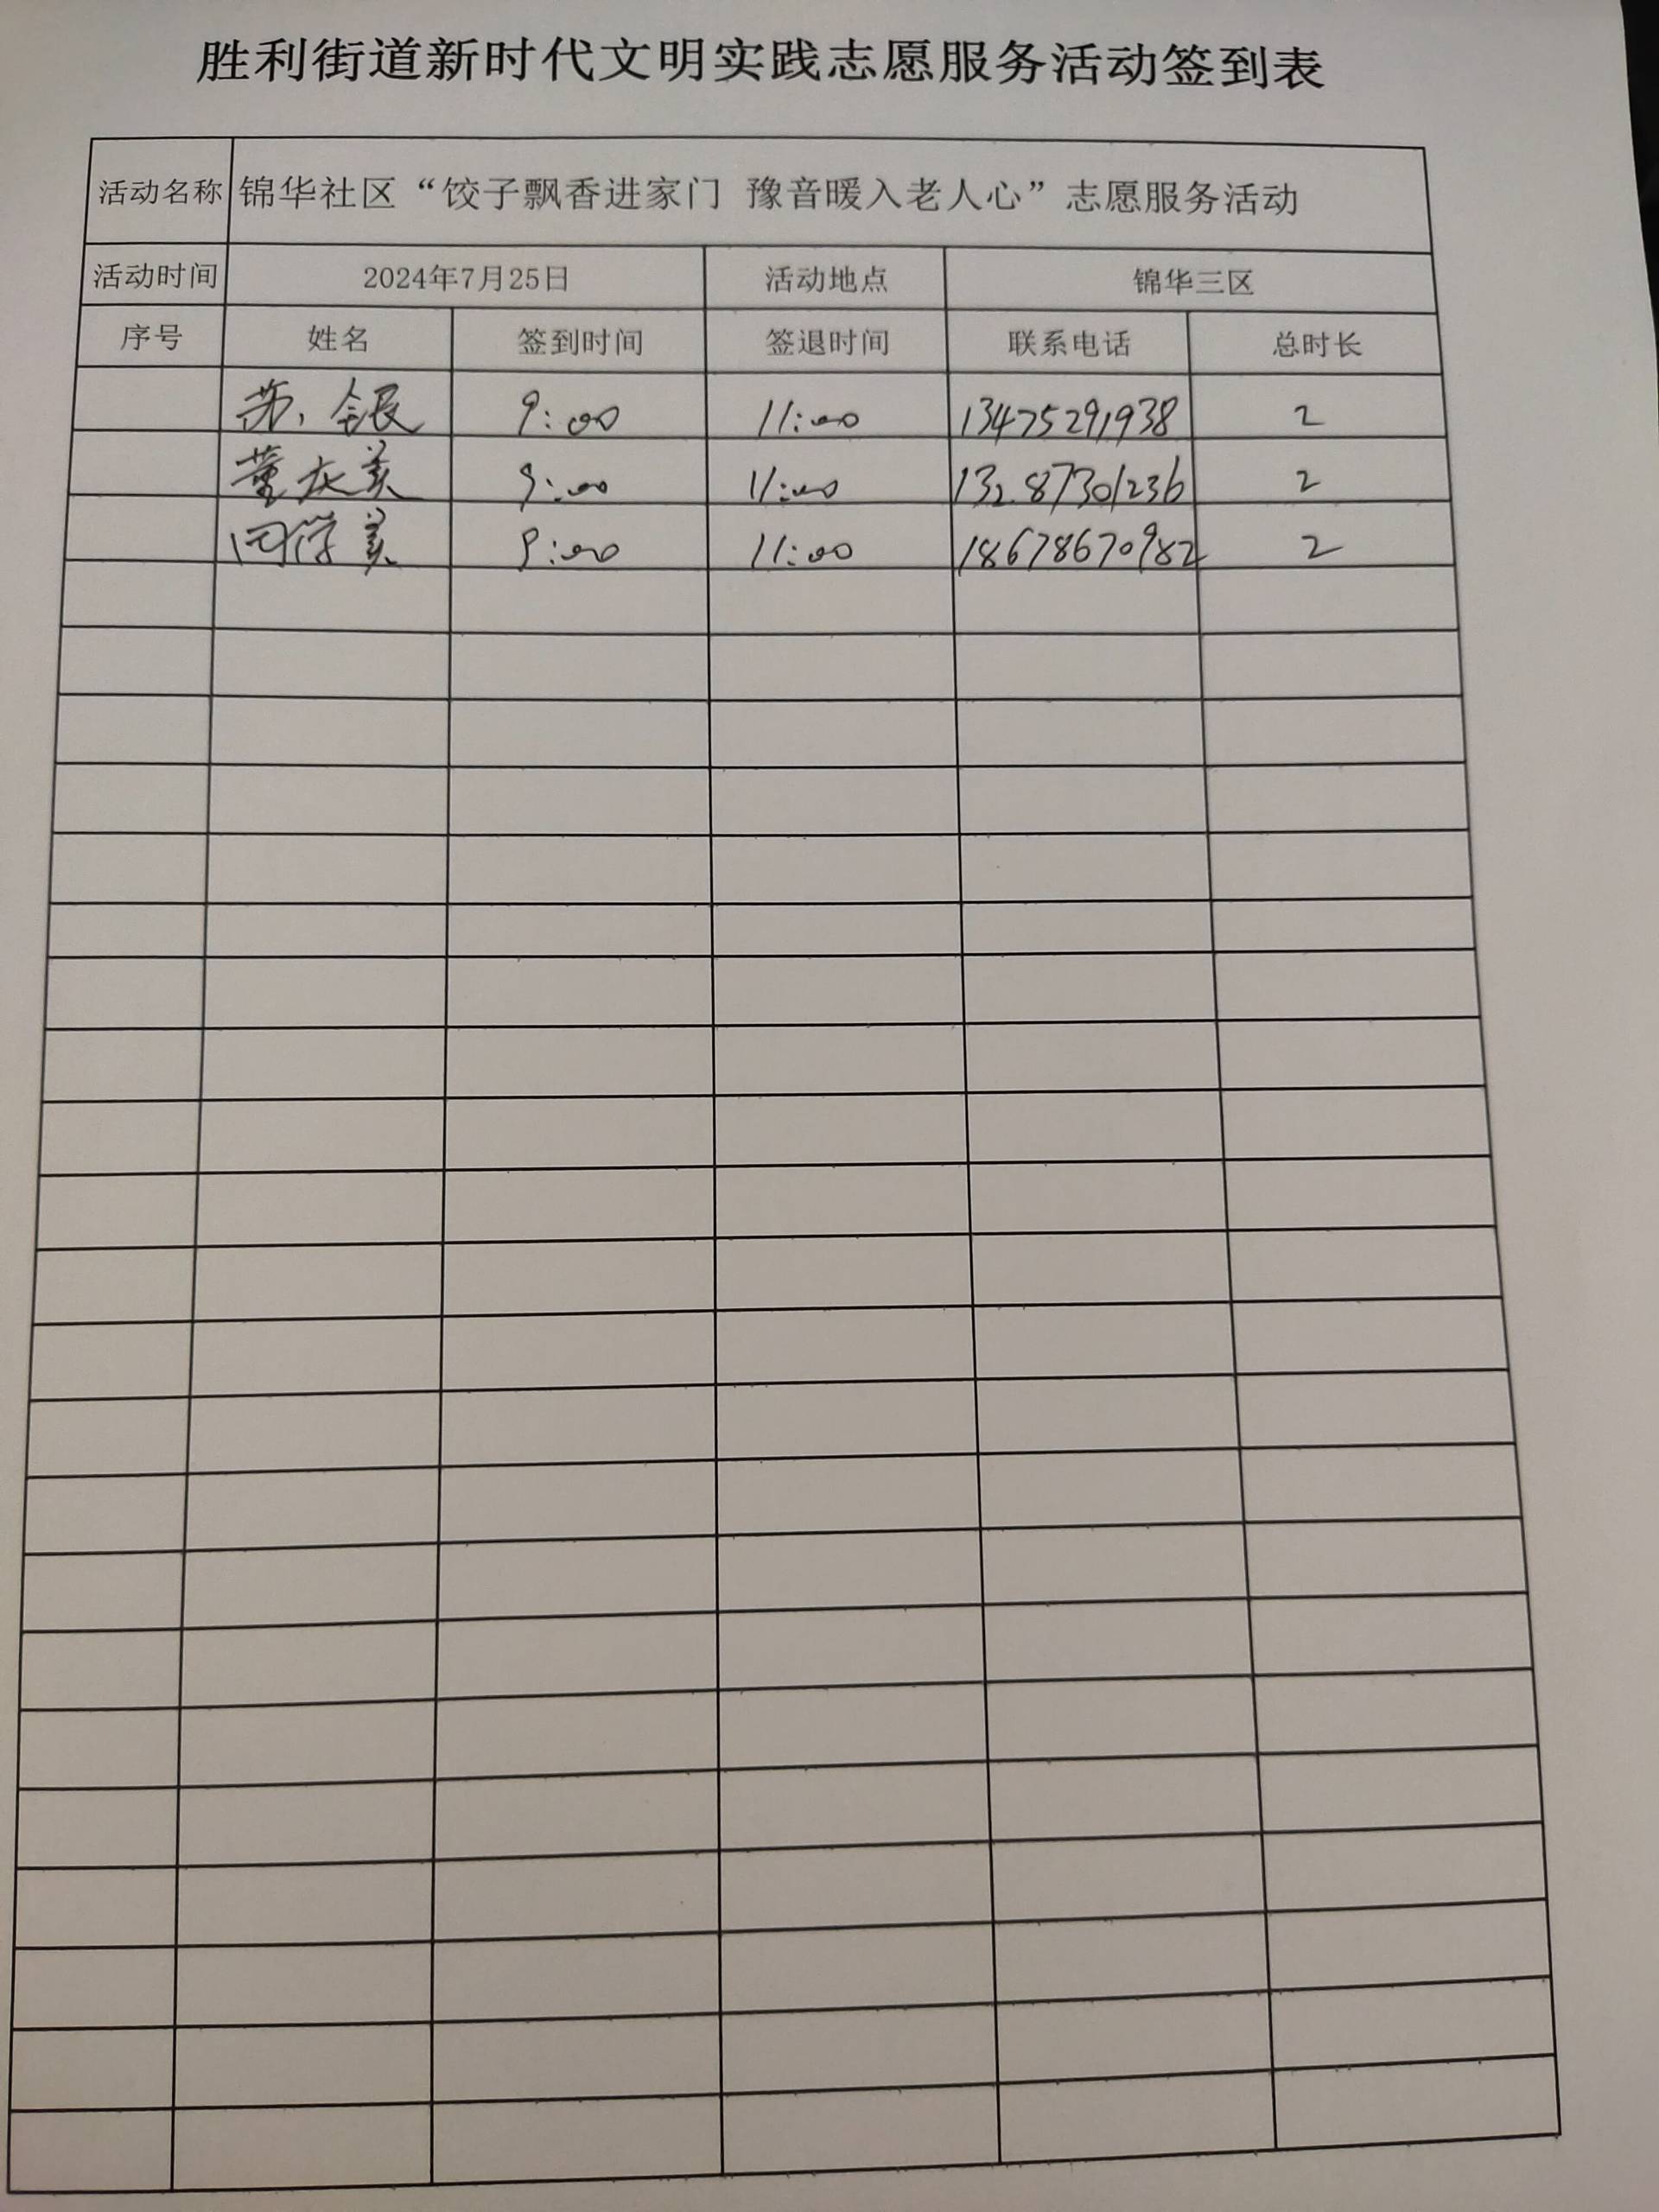 胜利街道新时代文明实践志愿服务活动签到表
活动名称 锦华社区“饺子飘香进家门 豫音暖入老人心”志愿服务活动
活动时间 2024年7月25日 活动地点 锦华三区
序号 姓名 签到时间 签退时间 联系电话 总时长
苏 银 9:00 11:00 13475291938 2
董 美 9:00 11:00 13287301236 2
学美 9:00 11:00 18678670982 2